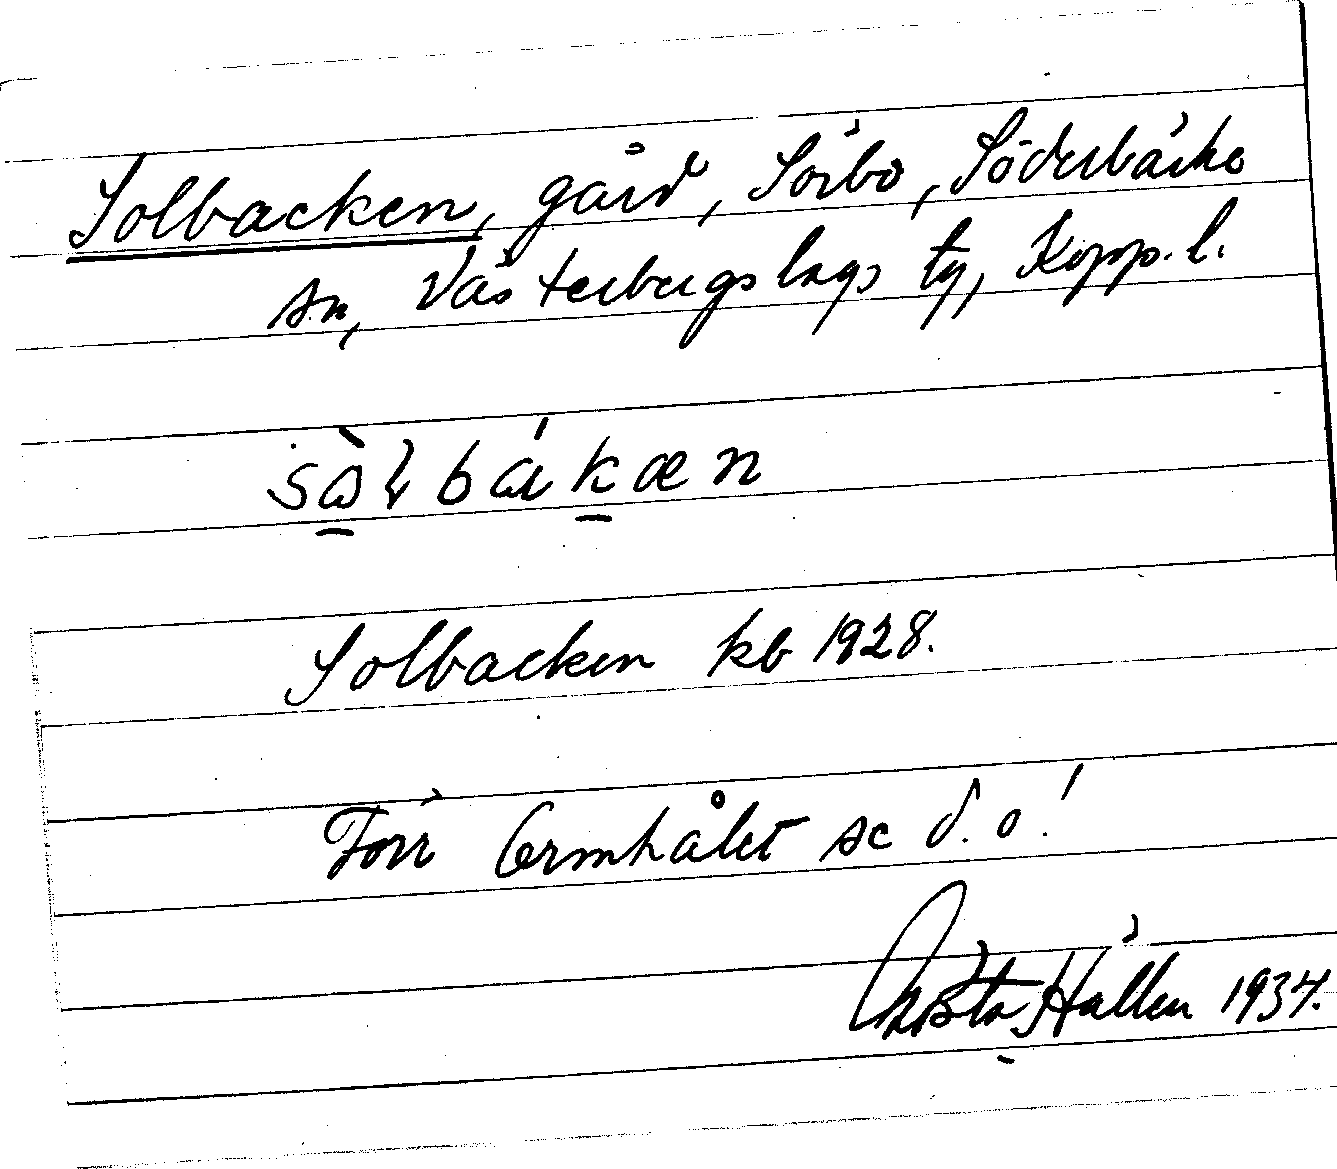 Solbacken, gård, Sörbo, Söderbärke
sn, Västerbergslags tg, Kopp. l.
Solbacken kb 1928.
Förr Ormhålet se d. o!
Gösta Hallén 1934.